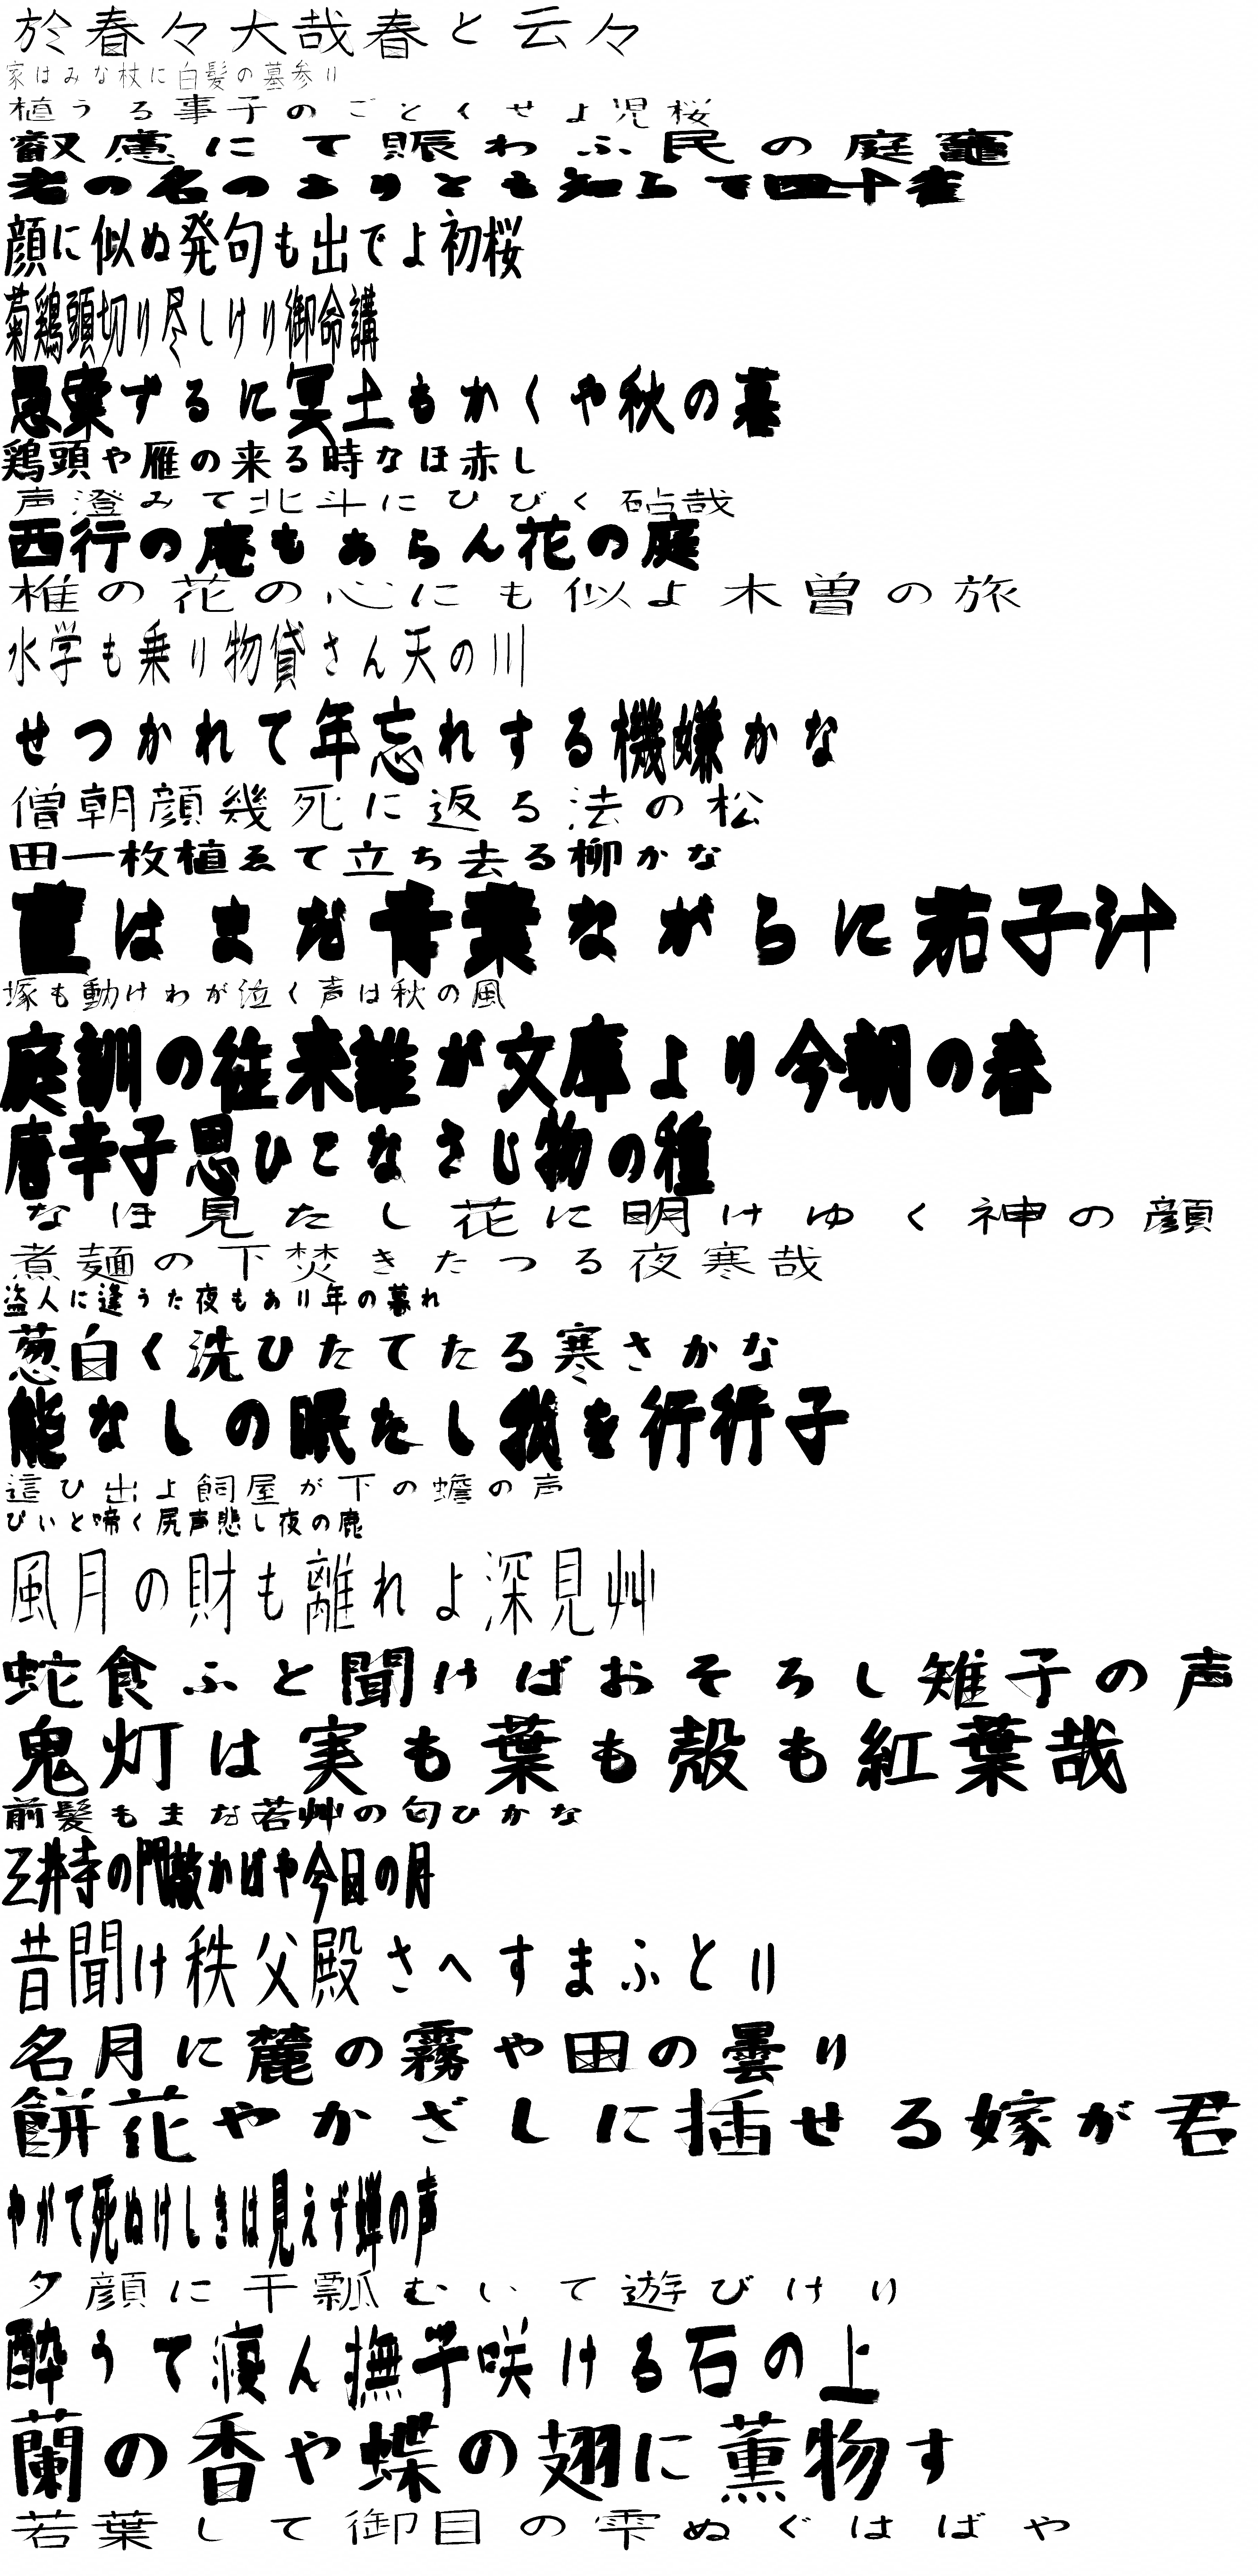 於春々大哉春と云々
家はみな杖に白髪の墓参り
植うる事子のごとくせよ児桜
叡慮にて賑わふ民の庭竈
老の名のありとも知らで四十雀
顔に似ぬ発句も出でよ初桜
菊鶏頭切り尽しけり御命講
愚案ずるに冥土もかくや秋の暮
鶏頭や雁の来る時なほ赤し
声澄みて北斗にひびく砧哉
西行の庵もあらん花の庭
椎の花の心にも似よ木曽の旅
水学も乗り物貸さん天の川
せつかれて年忘れする機嫌かな
僧朝顔幾死に返る法の松
田一枚植ゑて立ち去る柳かな
苣はまだ青葉ながらに茄子汁
塚も動けわが泣く声は秋の風
庭訓の往来誰が文庫より今朝の春
唐辛子思ひこなさじ物の種
なほ見たし花に明けゆく神の顔
煮麺の下焚きたつる夜寒哉
盗人に逢うた夜もあり年の暮れ
葱白く洗ひたてたる寒さかな
能なしの眠たし我を行行子
這ひ出よ飼屋が下の蟾の声
ぴいと啼く尻声悲し夜の鹿
風月の財も離れよ深見艸
蛇食ふと聞けばおそろし雉子の声
鬼灯は実も葉も殻も紅葉哉
前髪もまだ若艸の匂ひかな
三井寺の門敲かばや今日の月
昔聞け秩父殿さへすまふとり
名月に麓の霧や田の曇り
餅花やかざしに挿せる嫁が君
やがて死ぬけしきは見えず蝉の声
夕顔に干瓢むいて遊びけり
酔うて寝ん撫子咲ける石の上
蘭の香や蝶の翅に薫物す
若葉して御目の雫ぬぐはばや